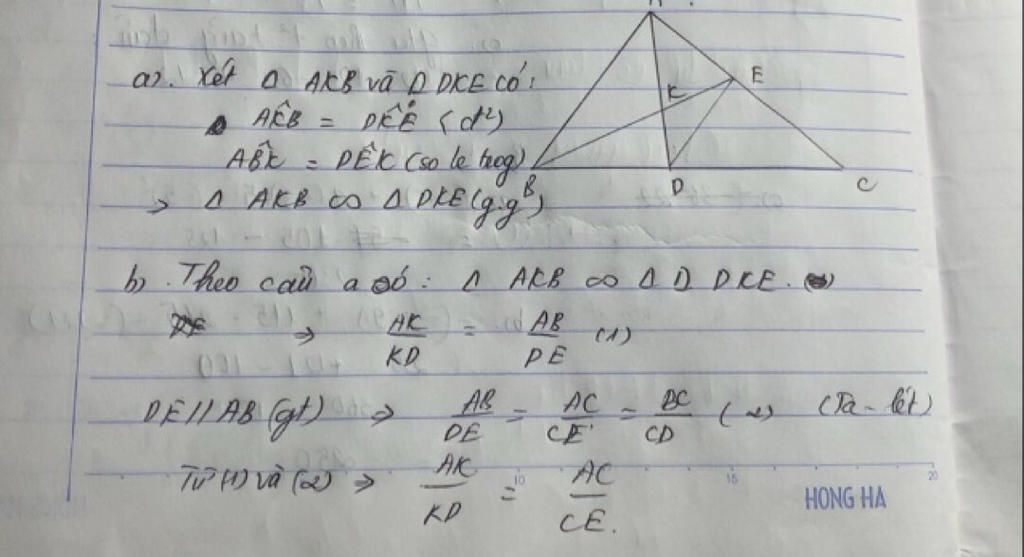 A
E
K
B
D
C
a). Xét Δ AKB và Δ DKE có:
AK̂B = DK̂E (đ²)
AB̂K = DÊK (so le trog)
=> Δ AKB ∽ Δ DKE (g.g)
b). Theo câu a có: Δ AKB ∽ Δ D DKE.
=> AK/KD = AB/DE (1)
DE // AB (gt) => AB/DE = AC/CE = BC/CD (2) (Ta-lét)
Từ (1) và (2) => AK/KD = AC/CE.
10 15 20
HONG HA